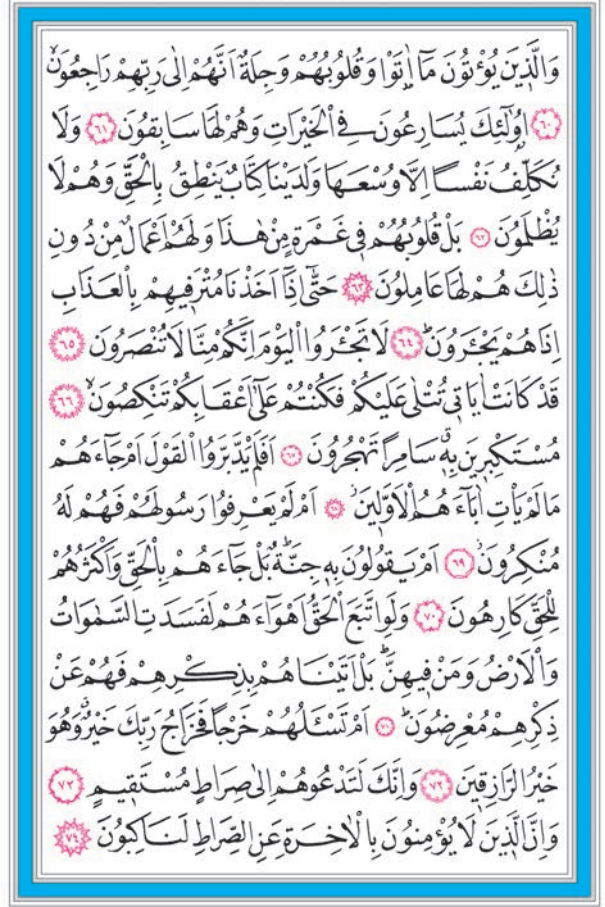 وَالَّذِينَ يُؤْتُونَ مَٓا اٰتَوْا وَقُلُوبُهُمْ وَجِلَةٌ اَنَّهُمْ اِلٰى رَبِّهِمْ رَاجِعُونَۙ
﴿٦٠﴾ اُو۬لٰٓئِكَ يُسَارِعُونَ فِي الْخَيْرَاتِ وَهُمْ لَهَا سَابِقُونَ ﴿٦١﴾ وَلَا
نُكَلِّفُ نَفْسًا اِلَّا وُسْعَهَا وَلَدَيْنَا كِتَابٌ يَنْطِقُ بِالْحَقِّ وَهُمْ لَا
يُظْلَمُونَ ﴿٦٢﴾ بَلْ قُلُوبُهُمْ فِي غَمْرَةٍ مِنْ هٰذَا وَلَهُمْ اَعْمَالٌ مِنْ دُونِ
ذٰلِكَ هُمْ لَهَا عَامِلُونَ ﴿٦٣﴾ حَتّٰٓى اِذَٓا اَخَذْنَا مُتْرَفِيهِمْ بِالْعَذَابِ
اِذَا هُمْ يَجْـَٔرُونَۜ ﴿٦٤﴾ لَا تَجْـَٔرُوا الْيَوْمَ اِنَّكُمْ مِنَّا لَا تُنْصَرُونَ ﴿٦٥﴾
قَدْ كَانَتْ اٰيَاتِي تُتْلٰى عَلَيْكُمْ فَكُنْتُمْ عَلٰٓى اَعْقَابِكُمْ تَنْكِصُونَۙ ﴿٦٦﴾
مُسْتَكْبِرِينَ بِهِۗ سَامِرًا تَهْجُرُونَ ﴿٦٧﴾ اَفَلَمْ يَدَّبَّرُوا الْقَوْلَ اَمْ جَٓاءَهُمْ
مَا لَمْ يَأْتِ اٰبَٓاءَهُمُ الْاَوَّلِينَۘ ﴿٦٨﴾ اَمْ لَمْ يَعْرِفُوا رَسُولَهُمْ فَهُمْ لَهُ
مُنْكِرُونَۘ ﴿٦٩﴾ اَمْ يَقُولُونَ بِهِ جِنَّةٌۜ بَلْ جَٓاءَهُمْ بِالْحَقِّ وَاَكْثَرُهُمْ
لِلْحَقِّ كَارِهُونَ ﴿٧٠﴾ وَلَوِ اتَّبَعَ الْحَقُّ اَهْوَٓاءَهُمْ لَفَسَدَتِ السَّمٰوَاتُ
وَالْاَرْضُ وَمَنْ فِيهِنَّۜ بَلْ اَتَيْنَاهُمْ بِذِكْرِهِمْ فَهُمْ عَنْ
ذِكْرِهِمْ مُعْرِضُونَۜ ﴿٧١﴾ اَمْ تَسْـَٔلُهُمْ خَرْجًا فَخَرَاجُ رَبِّكَ خَيْرٌۗ وَهُوَ
خَيْرُ الرَّازِقِينَ ﴿٧٢﴾ وَاِنَّكَ لَتَدْعُوهُمْ اِلٰى صِرَاطٍ مُسْتَقِيمٍ ﴿٧٣﴾
وَاِنَّ الَّذِينَ لَا يُؤْمِنُونَ بِالْاٰخِرَةِ عَنِ الصِّرَاطِ لَنَاكِبُونَ ﴿٧٤﴾